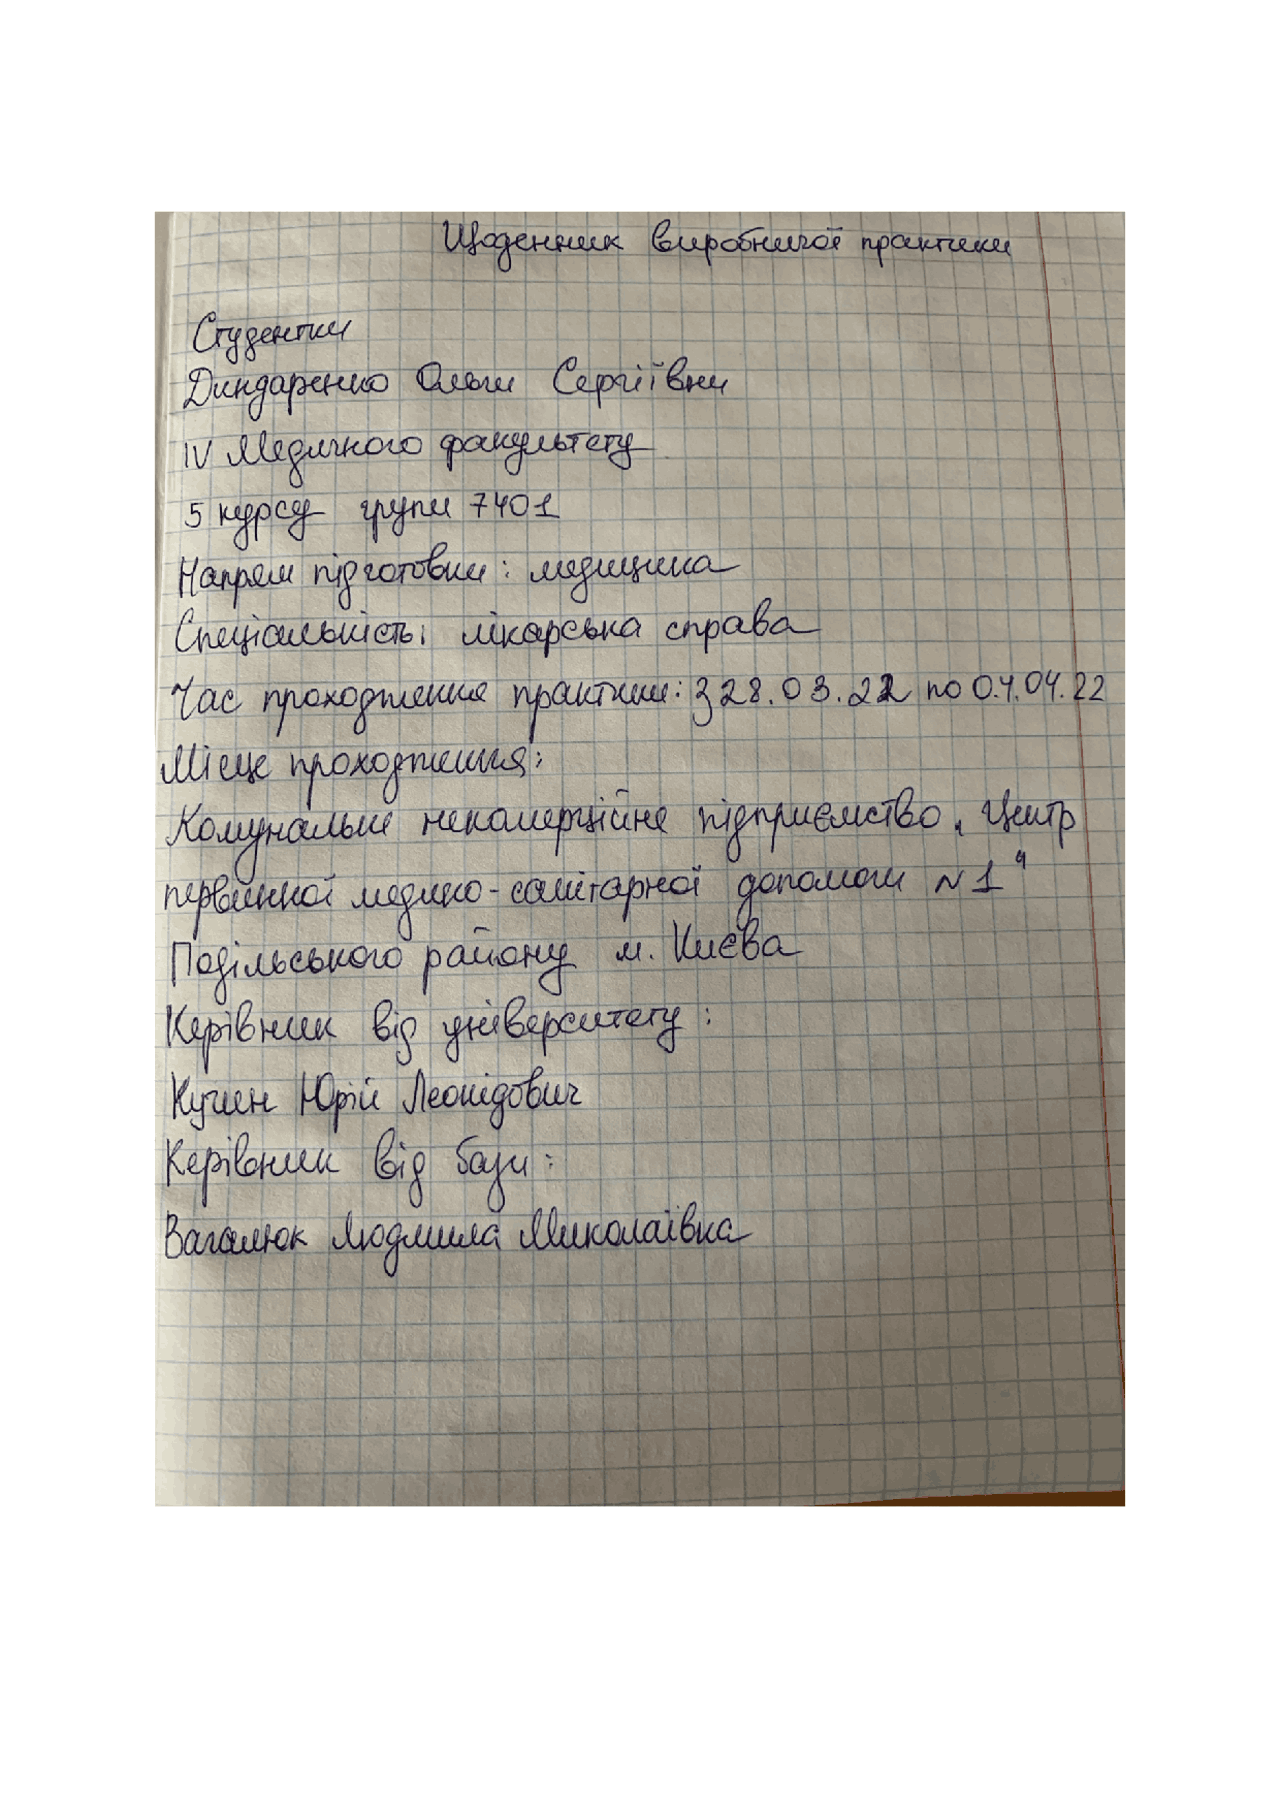 Щоденник виробничої практики
Студентки
Диндаренко Ольги Сергіївни
IV Медичного факультету
5 курсу групи 7401
Напрям підготовки: медицина
Спеціальність: лікарська справа
Час проходження практики: з 28.03.22 по 04.04.22
Місце проходження:
Комунальне некомерційне підприємство „Центр
первинної медико-санітарної допомоги №1"
Подільського району м. Києва
Керівник від університету:
Кучин Юрій Леонідович
Керівник від бази:
Вагалюк Людмила Миколаївна